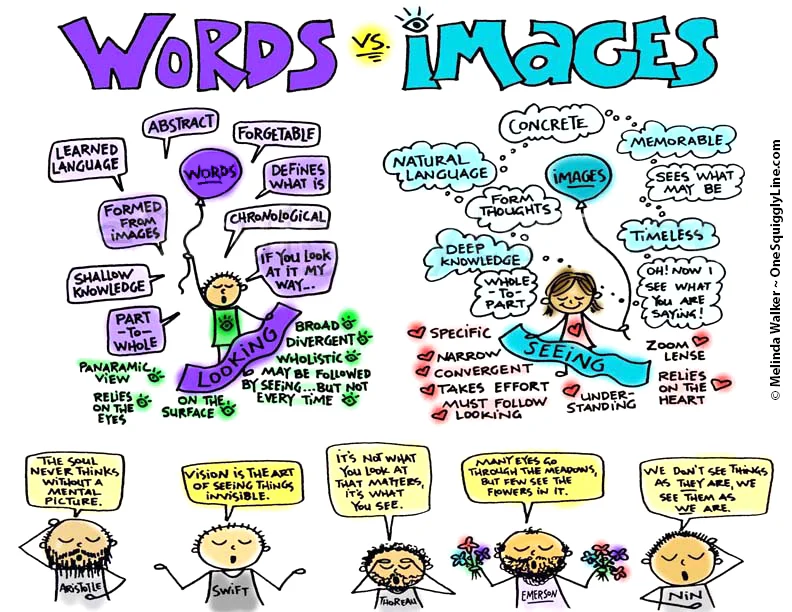 WORDS vs. IMAGES
ABSTRACT
FORGETABLE
LEARNED
LANGUAGE
WORDS
DEFINES
WHAT IS
FORMED
FROM
IMAGES
CHRONOLOGICAL
SHALLOW
KNOWLEDGE
IF YOU LOOK
AT IT MY
WAY...
PART
-TO-
WHOLE
LOOKING
PANARAMIC
VIEW
RELIES
ON THE
EYES
ON THE
SURFACE
BROAD
DIVERGENT
WHOLISTIC
MAY BE FOLLOWED
BY SEEING...BUT NOT
EVERY TIME
CONCRETE
MEMORABLE
NATURAL
LANGUAGE
IMAGES
SEES WHAT
MAY BE
FORM
THOUGHTS
TIMELESS
DEEP
KNOWLEDGE
WHOLE
-TO-
PART
OH! NOW I
SEE WHAT
YOU ARE
SAYING!
SEEING
SPECIFIC
NARROW
CONVERGENT
TAKES EFFORT
MUST FOLLOW
LOOKING
UNDER-
STANDING
ZOOM
LENSE
RELIES
ON THE
HEART
© Melinda Walker ~ OneSquigglyLine.com
THE SOUL
NEVER THINKS
WITHOUT A
MENTAL
PICTURE.
ARISTOTLE
VISION IS THE ART
OF SEEING THINGS
INVISIBLE.
SWIFT
IT'S NOT WHAT
YOU LOOK AT
THAT MATTERS,
IT'S WHAT
YOU SEE.
THOREAU
MANY EYES GO
THROUGH THE MEADOWS,
BUT FEW SEE THE
FLOWERS IN IT.
EMERSON
WE DON'T SEE THINGS
AS THEY ARE, WE
SEE THEM AS
WE ARE.
NIN